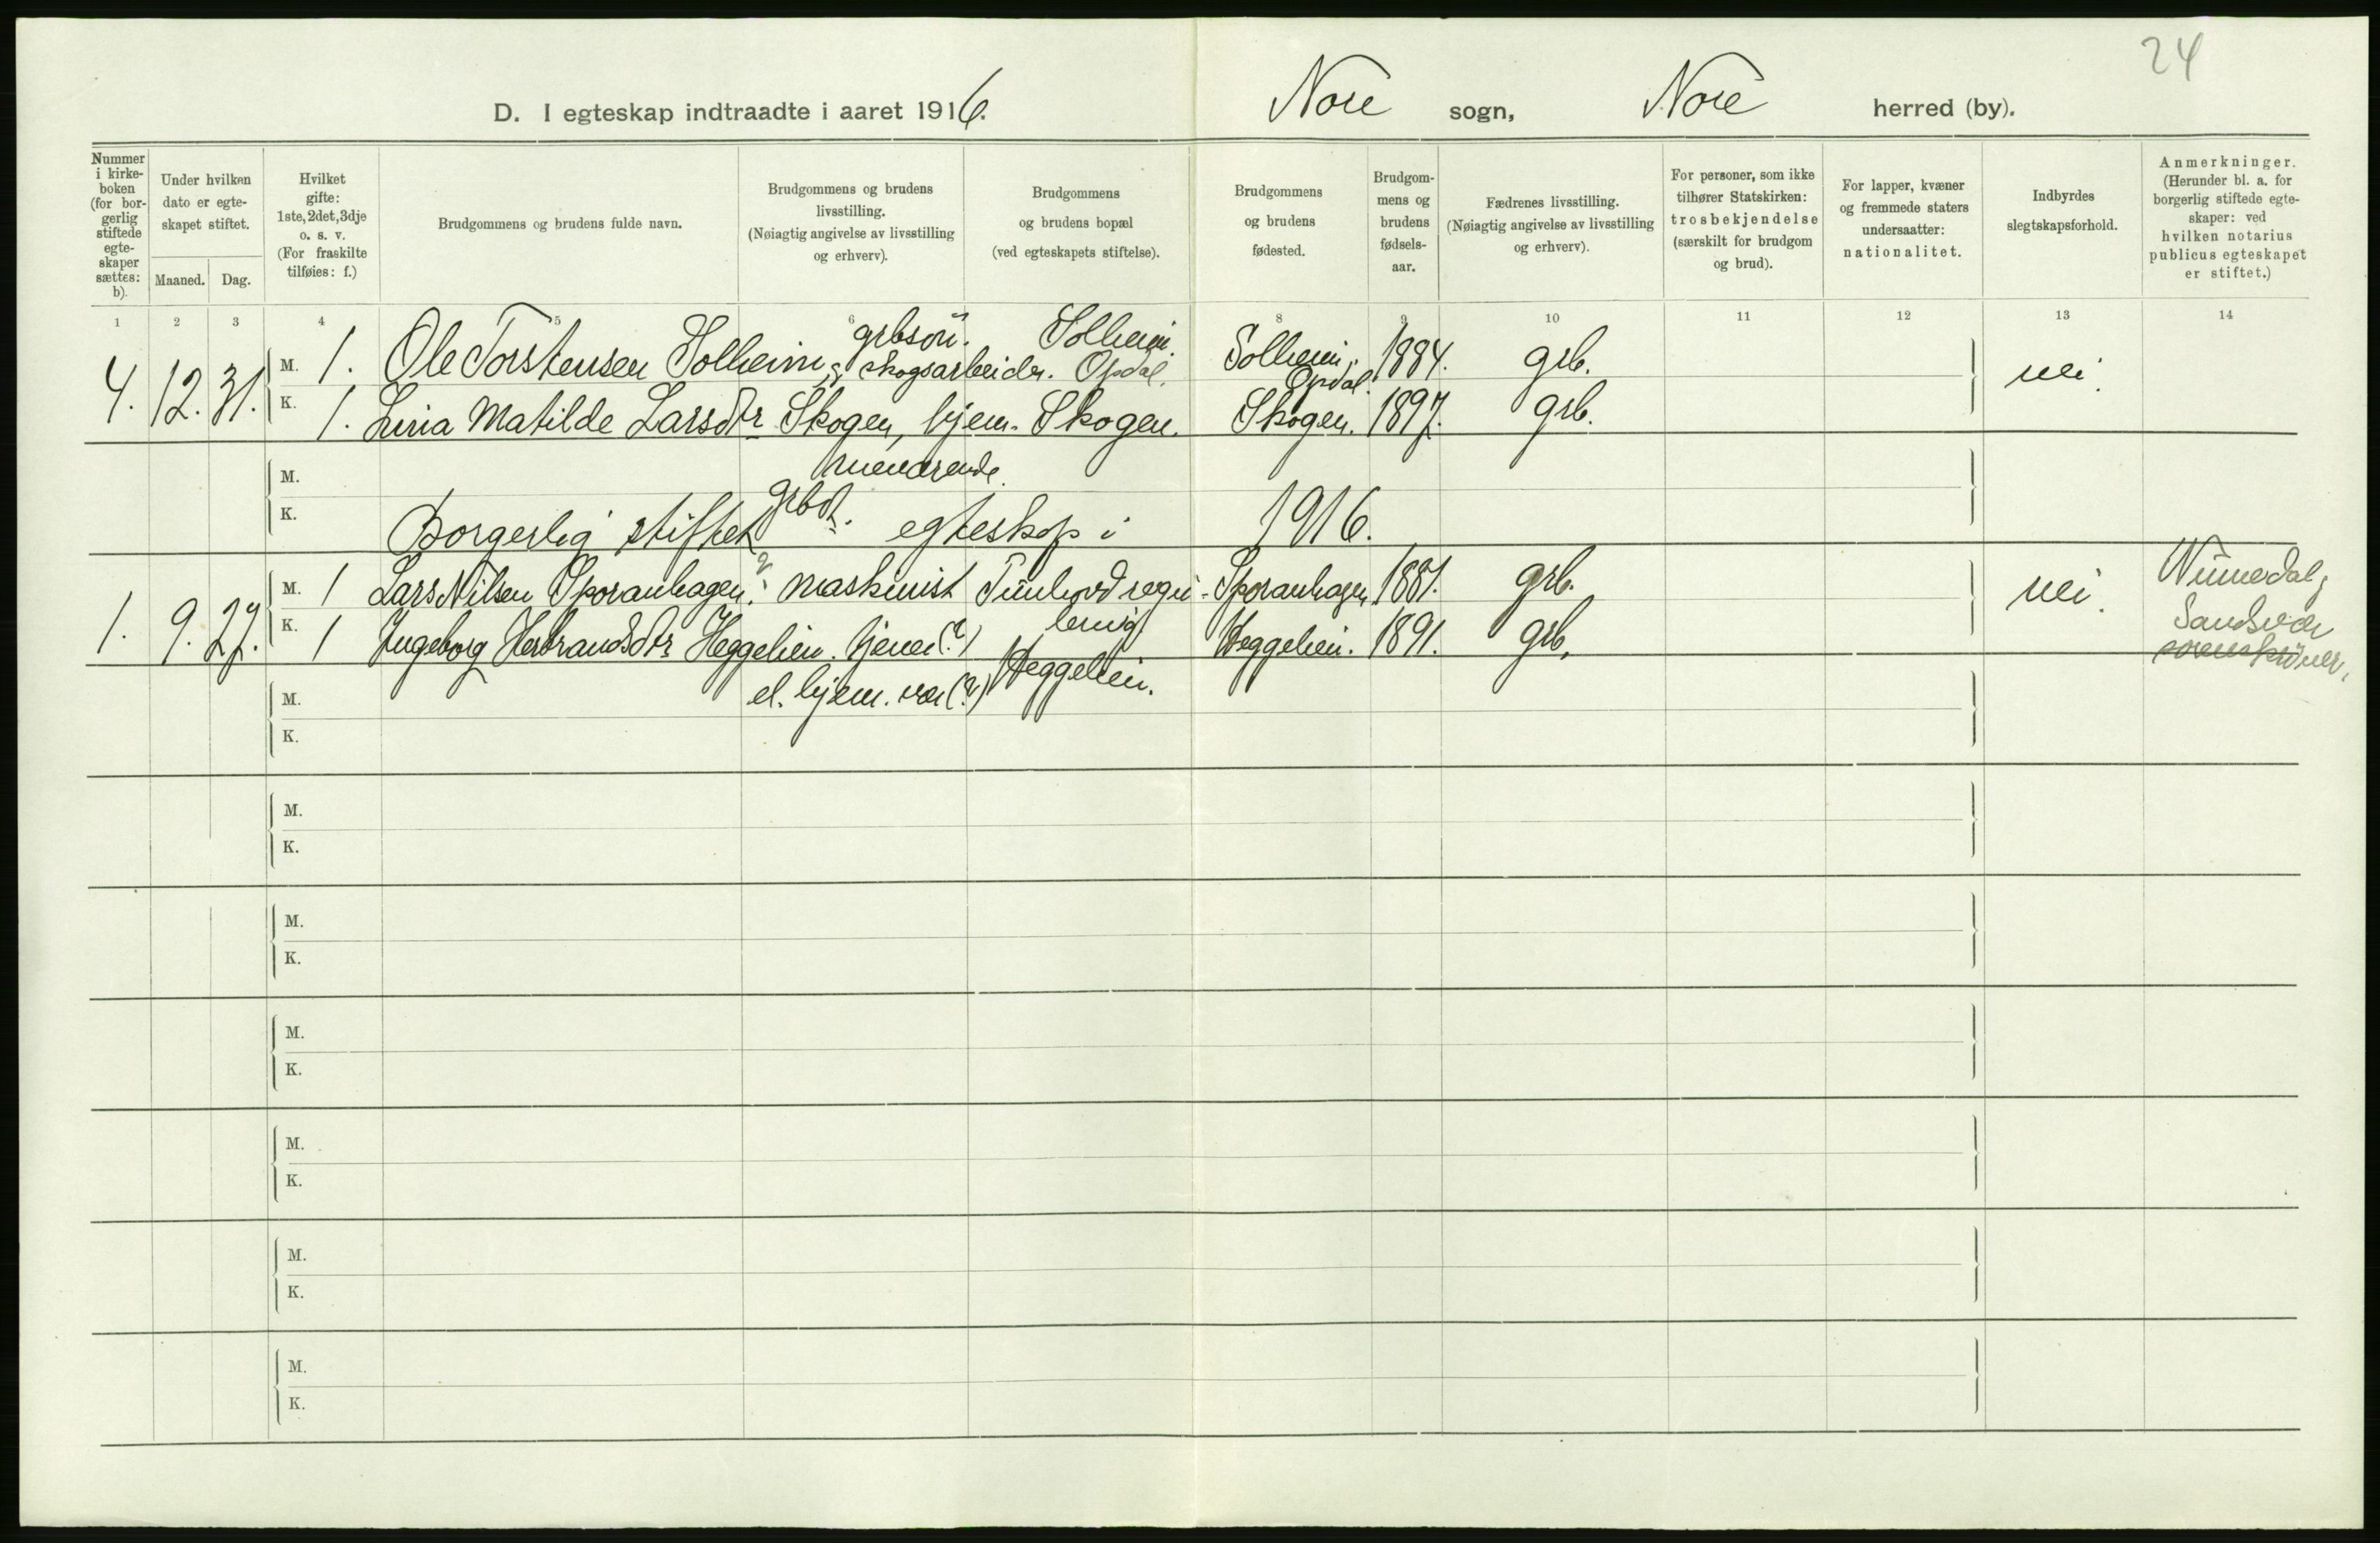 24
D. I egteskap indtraadte i aaret 1916. Nore sogn, Nore herred (by).
Nummer i kirke-boken (for bor-gerlig stiftede egte-skaper sættes: b).
Under hvilken dato er egte-skapet stiftet.
Maaned. Dag.
Hvilket gifte: 1ste, 2det, 3dje o. s. v. (For fraskilte tilføies: f.)
Brudgommens og brudens fulde navn.
Brudgommens og brudens livsstilling. (Nøiagtig angivelse av livsstilling og erhverv).
Brudgommens og brudens bopæl (ved egteskapets stiftelse).
Brudgommens og brudens fødested.
Brudgom-mens og brudens fødsels-aar.
Fædrenes livsstilling. (Nøiagtig angivelse av livsstilling og erhverv).
For personer, som ikke tilhører Statskirken: trosbekjendelse (særskilt for brudgom og brud).
For lapper, kvæner og fremmede staters undersaatter: nationalitet.
Indbyrdes slegtskapsforhold.
Anmerkninger. (Herunder bl. a. for borgerlig stiftede egte-skaper: ved hvilken notarius publicus egteskapet er stiftet.)
1 2 3 4 5 6 8 9 10 11 12 13 14
4. 12. 31. M. 1. Ole Torstensen Solheim, grbsøn. & skogsarbeider. Solheim. Opdal. Solheim, Opdal. 1884. grb. nei.
K. 1. Matilde Larsdtr Skogen, hjem-værende grbdt. Skogen. Skogen. 1897. grb.
M.
K. Borgerlig stiftet egteskap i 1916.
1. 9. 27. M. 1 Lars Nilsen Sporanhagen. maskinist Tunhovd regu-lering Sporanhagen 1881. grb. nei. Numedal & Sandsvær sorenskriver.
K. 1 Ingeborg Herbrandsdtr Heggelien. tjener (?) el. hjem. vær (?) Heggelien. Heggelien. 1891. grb.
M.
K.
M.
K.
M.
K.
M.
K.
M.
K.
M.
K.
M.
K.